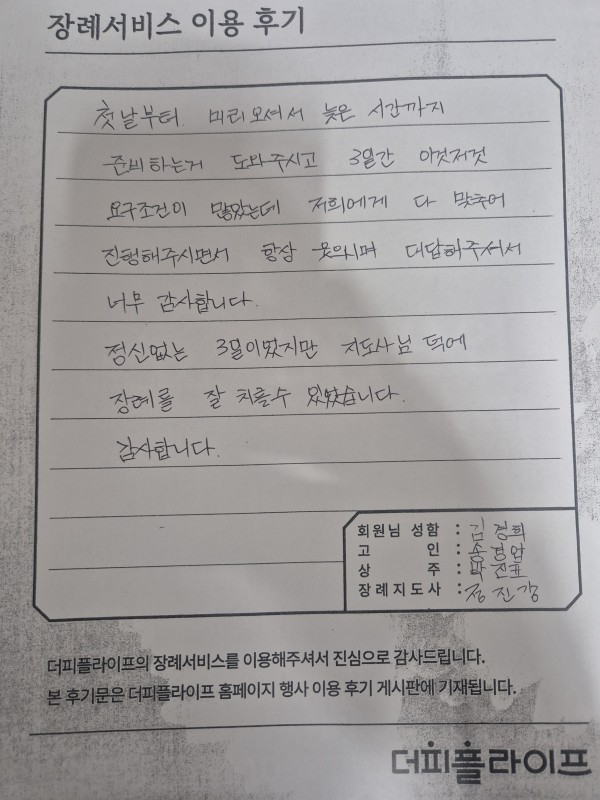 장례서비스 이용 후기
첫날부터 미리오셔서 늦은 시간까지
준비하는거 도와주시고 3일간 이것저것
요구조건이 많았는데 저희에게 다 맞추어
진행해주시면서 항상 웃으시며 대답해주셔서
너무 감사합니다.
정신없는 3일이었지만 지도사님 덕에
장례를 잘 치를수 있었습니다.
감사합니다.
회원님 성함 : 김경희
고 인 : 송경암
상 주 : 박진표
장례지도사 : 정진강
더피플라이프의 장례서비스를 이용해주셔서 진심으로 감사드립니다.
본 후기문은 더피플라이프 홈페이지 행사 이용 후기 게시판에 기재됩니다.
더피플라이프